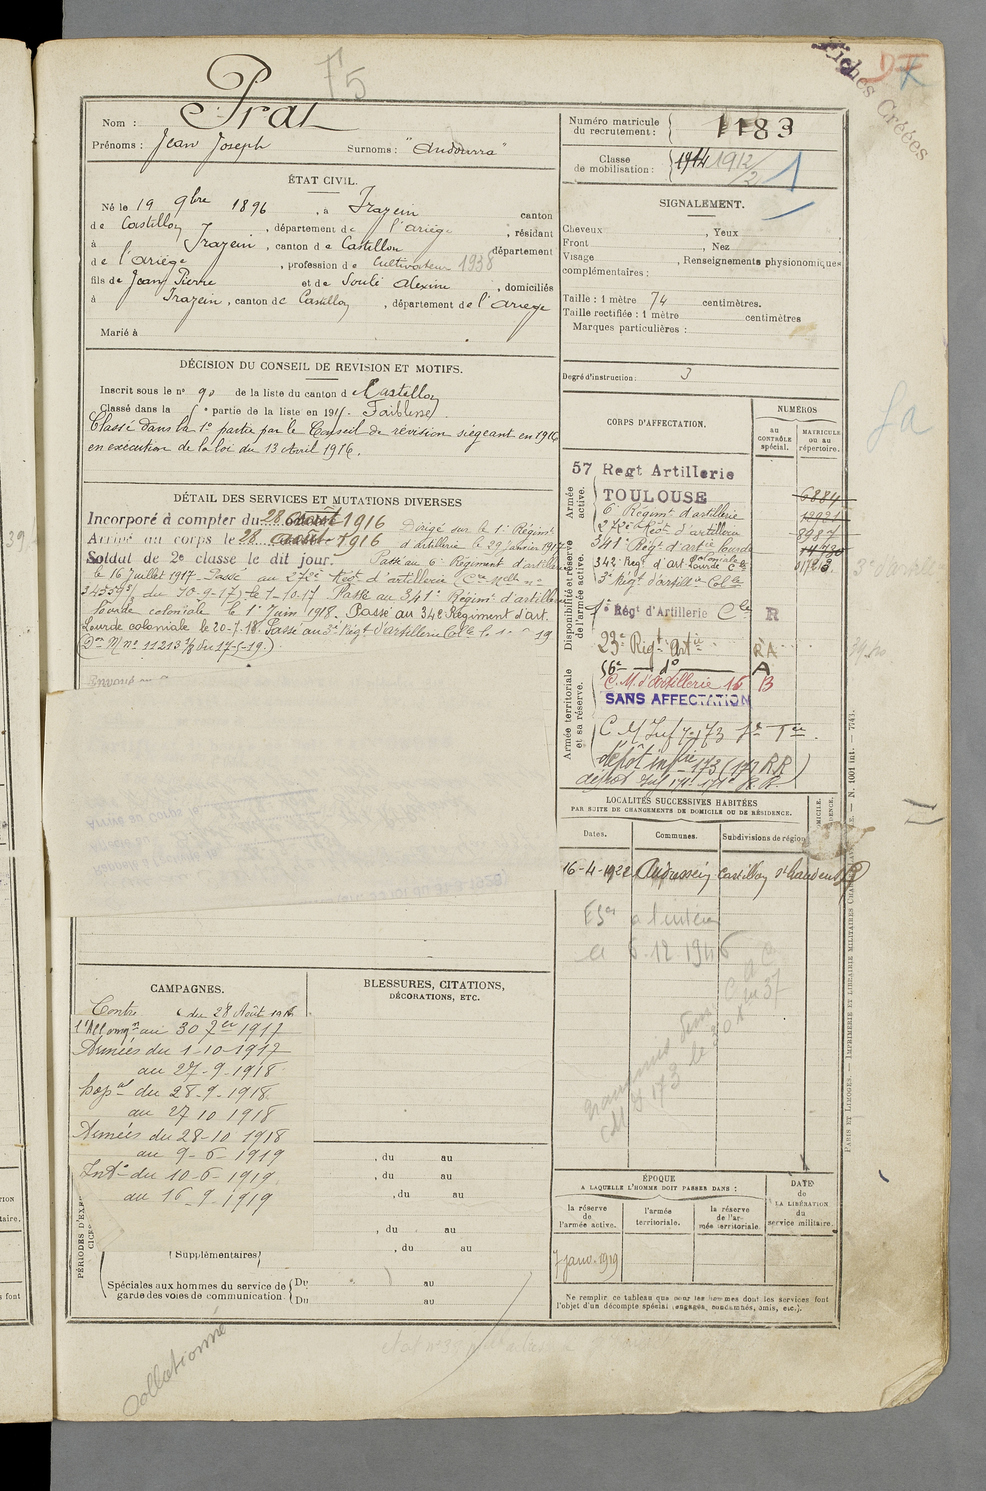 F5
Fiches Créées
Nom : Prat
Prénoms : Jean Joseph Surnoms : "Andourra"
Numéro matricule du recrutement : 1183
Classe de mobilisation : 1914 1912/2 1
ÉTAT CIVIL.
Né le 19 9bre 1896, à Irazein canton
de Castillon, département de l'ariège, résidant
à Irazein, canton de Castillon département
de l'ariège, profession de Cultivateur 1938
fils de Jean Pierre et de Soulé Alexine, domiciliés
à Irazein, canton de Castillon, département de l'ariège
Marié à
SIGNALEMENT.
Cheveux , Yeux
Front , Nez
Visage , Renseignements physionomiques
complémentaires :
Taille : 1 mètre 74 centimètres.
Taille rectifiée : 1 mètre centimètres
Marques particulières :
Degré d'instruction : 3
DÉCISION DU CONSEIL DE REVISION ET MOTIFS.
Inscrit sous le n° 90 de la liste du canton de Castillon
Classé dans la 5e partie de la liste en 1915. Faiblesse.
Classé dans la 1e partie par le Conseil de révision siégeant en 1916
en exécution de la loi du 13 Avril 1916.
DÉTAIL DES SERVICES ET MUTATIONS DIVERSES
Incorporé à compter du 28 août 1916
Arrivé au corps le 28 août 1916
Dirigé sur le 1er Régiment
d'artillerie le 29 janvier 1917
Soldat de 2e classe le dit jour. Passé au 6e Régiment d'artillerie
le 16 juillet 1917. Passé au 272e Régt d'artillerie
du 30-9-17) le 1-10-17 Passé au 341e Régimt d'artillerie
lourde coloniale le 1er Juin 1918. Passé au 342e Régiment d'art.
Lourde coloniale le 20-7-18. Passé au 3e Régt d'artillerie Colle le 19
(Don M no 11213 3/9 du 17-5-19.)
CORPS D'AFFECTATION.
NUMÉROS
au CONTRÔLE spécial.
MATRICULE ou au répertoire.
Armée active.
57 Regt Artillerie
TOULOUSE
6e Régimt d'artillerie
272e Régt d'artillerie
341e Régt d'artie lourde
342e Regt d'Art Lourde coloniale
3e Régt d'artillie Colle
6884
12921
8987
14730
017213
Disponibilité et réserve de l'armée active.
1e Régt d'Artillerie Cle R
23e Régt Artie RA
16e do A
C.M. d'artillerie 16 B
SANS AFFECTATION
Armée territoriale et sa réserve.
C M Inf 7-173
dépôt infie 173 (173 RR)
LOCALITÉS SUCCESSIVES HABITÉES
PAR SUITE DE CHANGEMENTS DE DOMICILE OU DE RÉSIDENCE.
Dates. Communes. Subdivisions de région
16-4-1922 Audressein Castillon St Gaudens R
à l'intérieur
6.12.1946
CAMPAGNES.
Contre du 28 Août 1916
l'Allemgne au 30 7bre 1917
Armées du 1-10-1917
au 27-9-1918.
hopal du 28-9-1918.
au 27 10 1918
Armées du 28-10 1918
au 9-6-1919
Intr du 10-6-1919
au 16-9-1919
BLESSURES, CITATIONS,
DÉCORATIONS, ETC.
, du au
, du au
, du au
, du au
, du au
PÉRIODES D'EXERCICES
(Supplémentaires)
Spéciales aux hommes du service de garde des voies de communication
Du au
Du au
ÉPOQUE
A LAQUELLE L'HOMME DOIT PASSER DANS :
la réserve de l'armée active.
l'armée territoriale.
la réserve de l'armée territoriale.
DATE de LA LIBÉRATION du service militaire.
7 janv. 1919
Ne remplir ce tableau que pour les hommes dont les services font
l'objet d'un décompte spécial (engagés, condamnés, omis, etc.).
Collationné
PARIS ET LIMOGES. — IMPRIMERIE ET LIBRAIRIE MILITAIRES CHARLES-LAVAUZELLE. — N. 1001 int. — 7743.